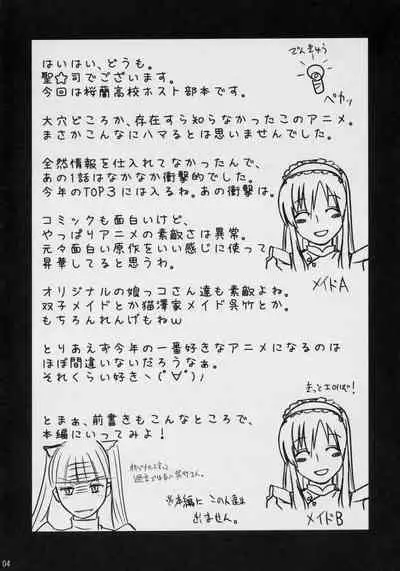 はいはい、どうも。
聖☆司でございます。
今回は桜蘭高校ホスト部本です。
大穴どころか、存在すら知らなかったこのアニメ。
まさかこんなにハマるとは思いませんでした。
全然情報を仕入れてなかったんで、
あの1話はなかなか衝撃的でした。
今年のTOP3には入るね。あの衝撃は。
コミックも面白いけど、
やっぱりアニメの素敵さは異常。
元々面白い原作をいい感じに使って
昇華してると思うわ。
オリジナルの娘っコさん達も素敵よね。
双子メイドとか猫澤家メイド呉竹とか。
もちろんれんげもねw
とりあえず今年の一番好きなアニメになるのは
ほぼ間違いないだろうなぁ。
それくらい好きヽ(°∀°)ﾉ
とまぁ、前書きもこんなところで、
本編にいってみよ！
でんきゅう
ペカッ
メイドA
きっとエロいはず！
メイドB
※本編に この人達は
出ません。
04